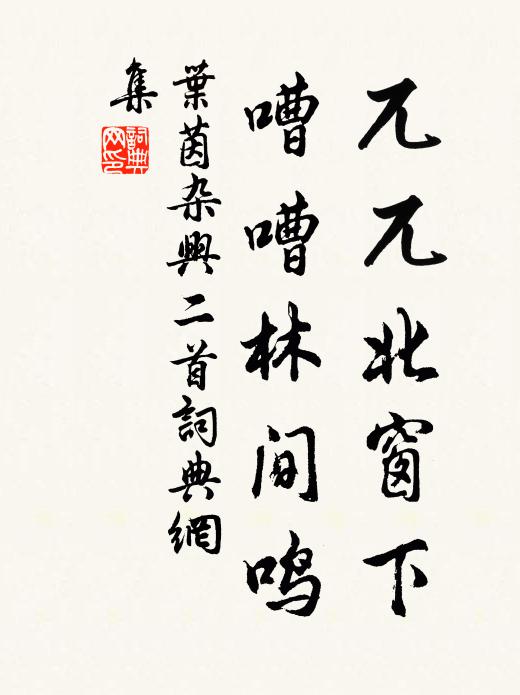 兀兀北窗下
嘈嘈林间鸣
葉茵杂興二首詞典網
集
詞典网印